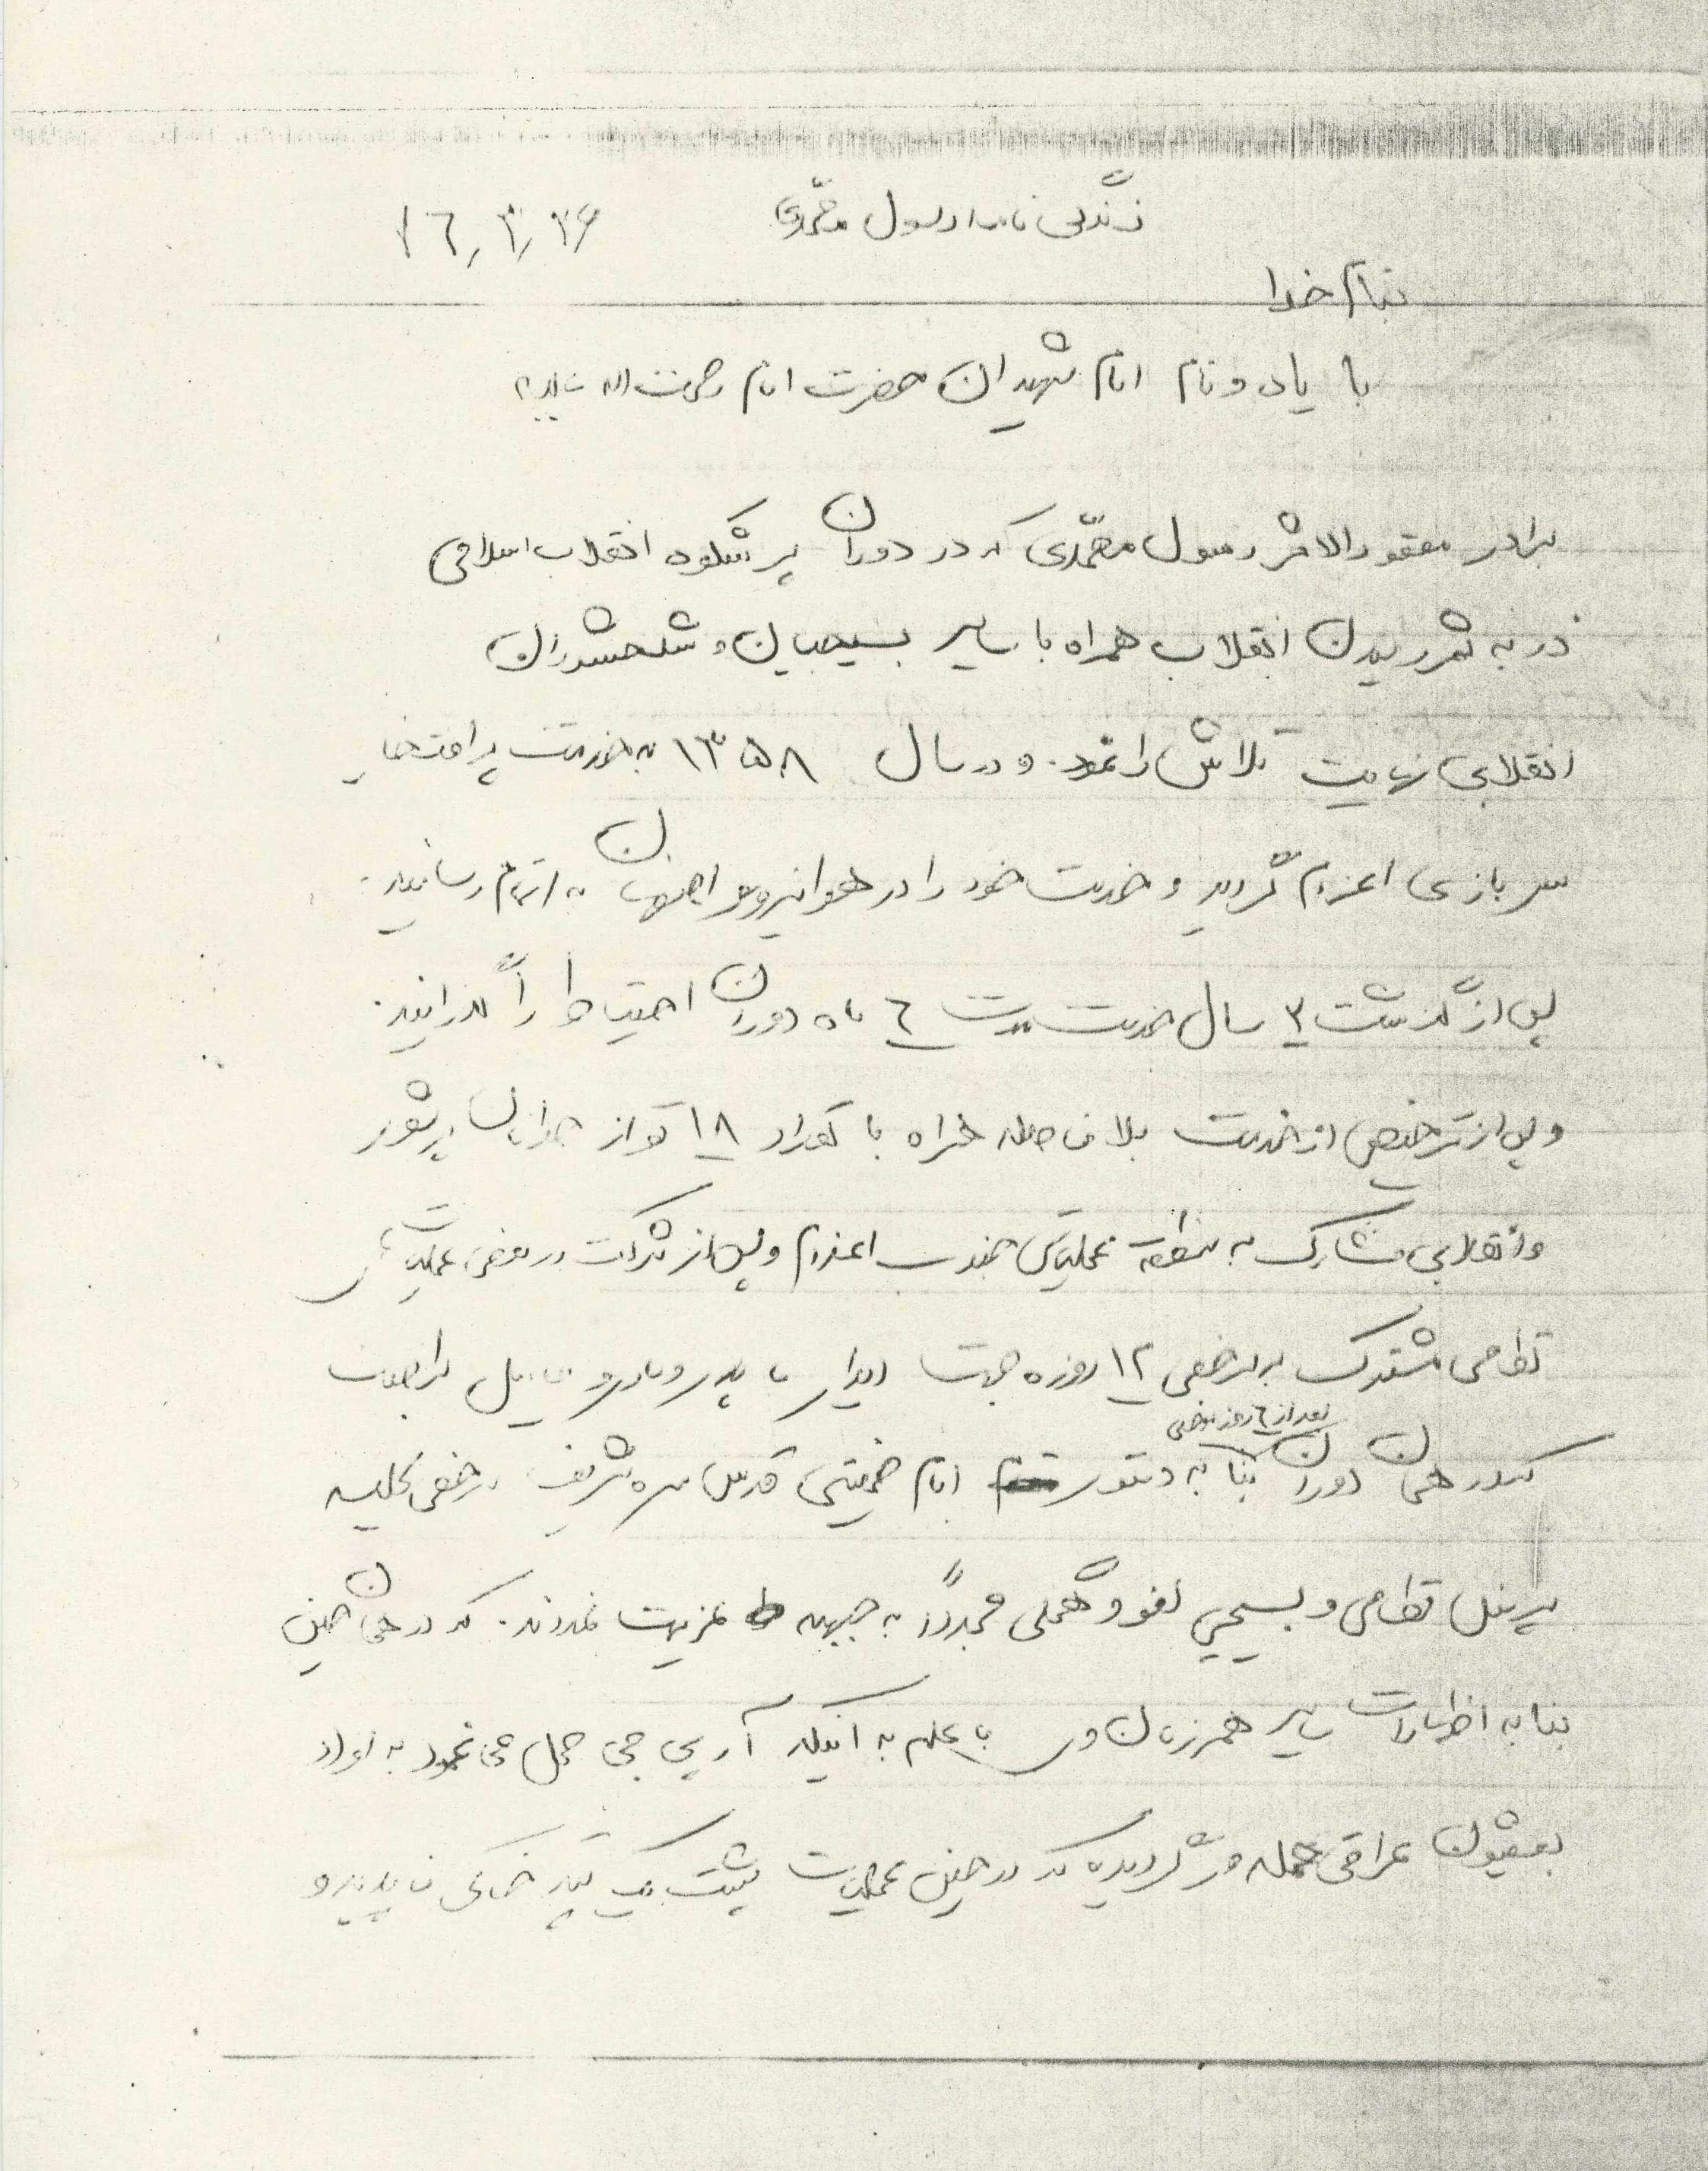 زندگی نامه رسول محمدی ۱٦٫۳٫۷۶
بنام خدا
با یاد و نام امام شهیدان حضرت امام رحمت اله علیه
برادر مفقودالاثر رسول محمّدی که در دوران پرشکوه انقلاب اسلامی
در به ثمر رسیدن انقلاب همراه با سایر بسیجیان و
انقلابی نهایت تلاش را نمود. و در سال ۱۳۵۸ به خدمت پر افتخار
سربازی اعزام گردید و خدمت خود را در هوانیروز اصفهان به اتمام رسانید.
پس از گذشت ۲ سال خدمت مدت ٦ ماه دوران احتیاط را گذرانید.
و پس از ترخیص از خدمت بلافاصله همراه با تعداد ۱۸ تن از جوانان پرشور
و انقلابی مشارک به منطقه عملیاتی جنوب اعزام و پس از شرکت در بعضی عملیات
نظامی مشترک به مرخصی ۱۲ روزه جهت دیدار با پدر و مادر و فامیل مراجعت
بعد از ٦ روز مرخصی
که در همان دوران بنا به دستور امام خمینی قدس سره شریف مرخصی کلیه
پرسنل نظامی و بسیجی لغو و همگی مجدداً به جبهه عزیمت نمودند. که در همان حین
بنا به اظهارات سایر همرزمان وی با علم به اینکه آر پی جی حمل می نمود به افراد
بعثیون عراقی حمله ور گردیده که در حین عملیات پشت یک تپه خاکی ناپدید و